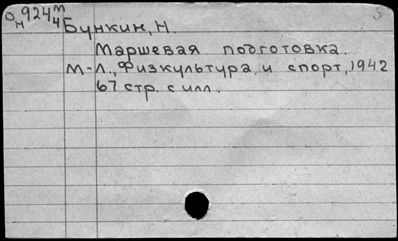 Он924 М4 Бункин, Н.
Маршевая подготовка.
М-Л., Физкультура и спорт, 1942
67 стр. с илл.